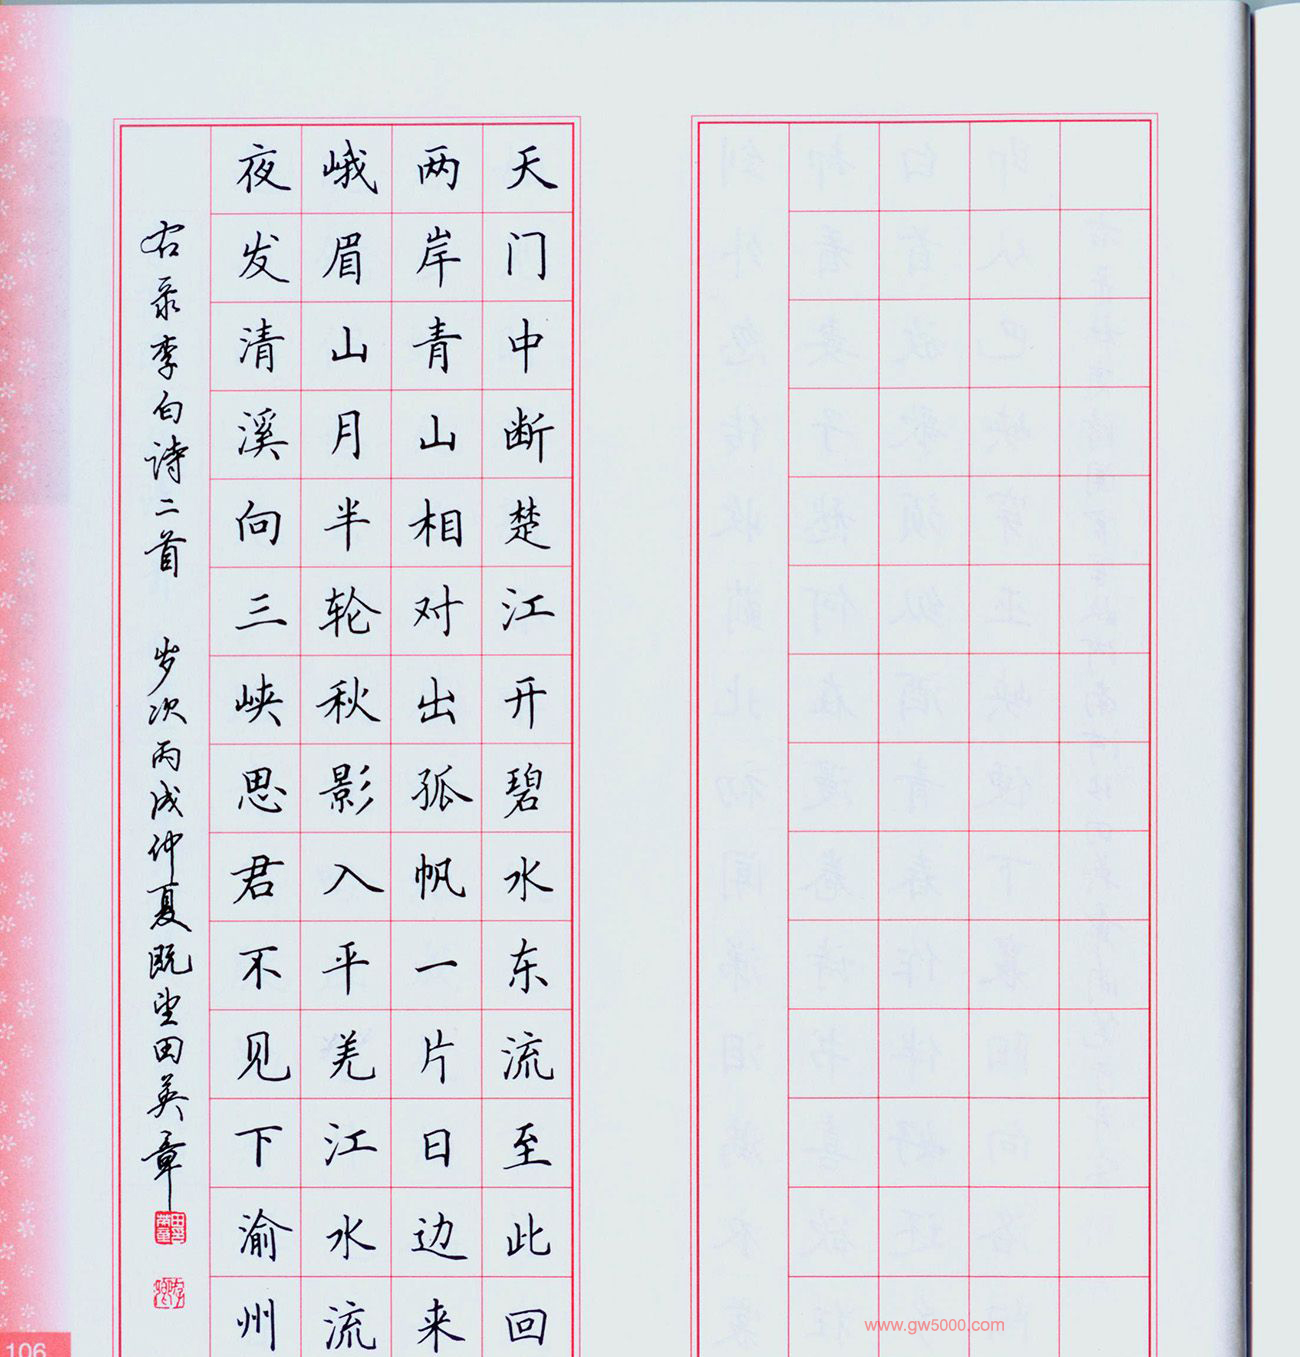 天门中断楚江开碧水东流至此回
两岸青山相对出孤帆一片日边来
峨眉山月半轮秋影入平羌江水流
夜发清溪向三峡思君不见下渝州
右录李白诗二首 岁次丙戌仲夏既望田英章
田英章
106
www.gw5000.com